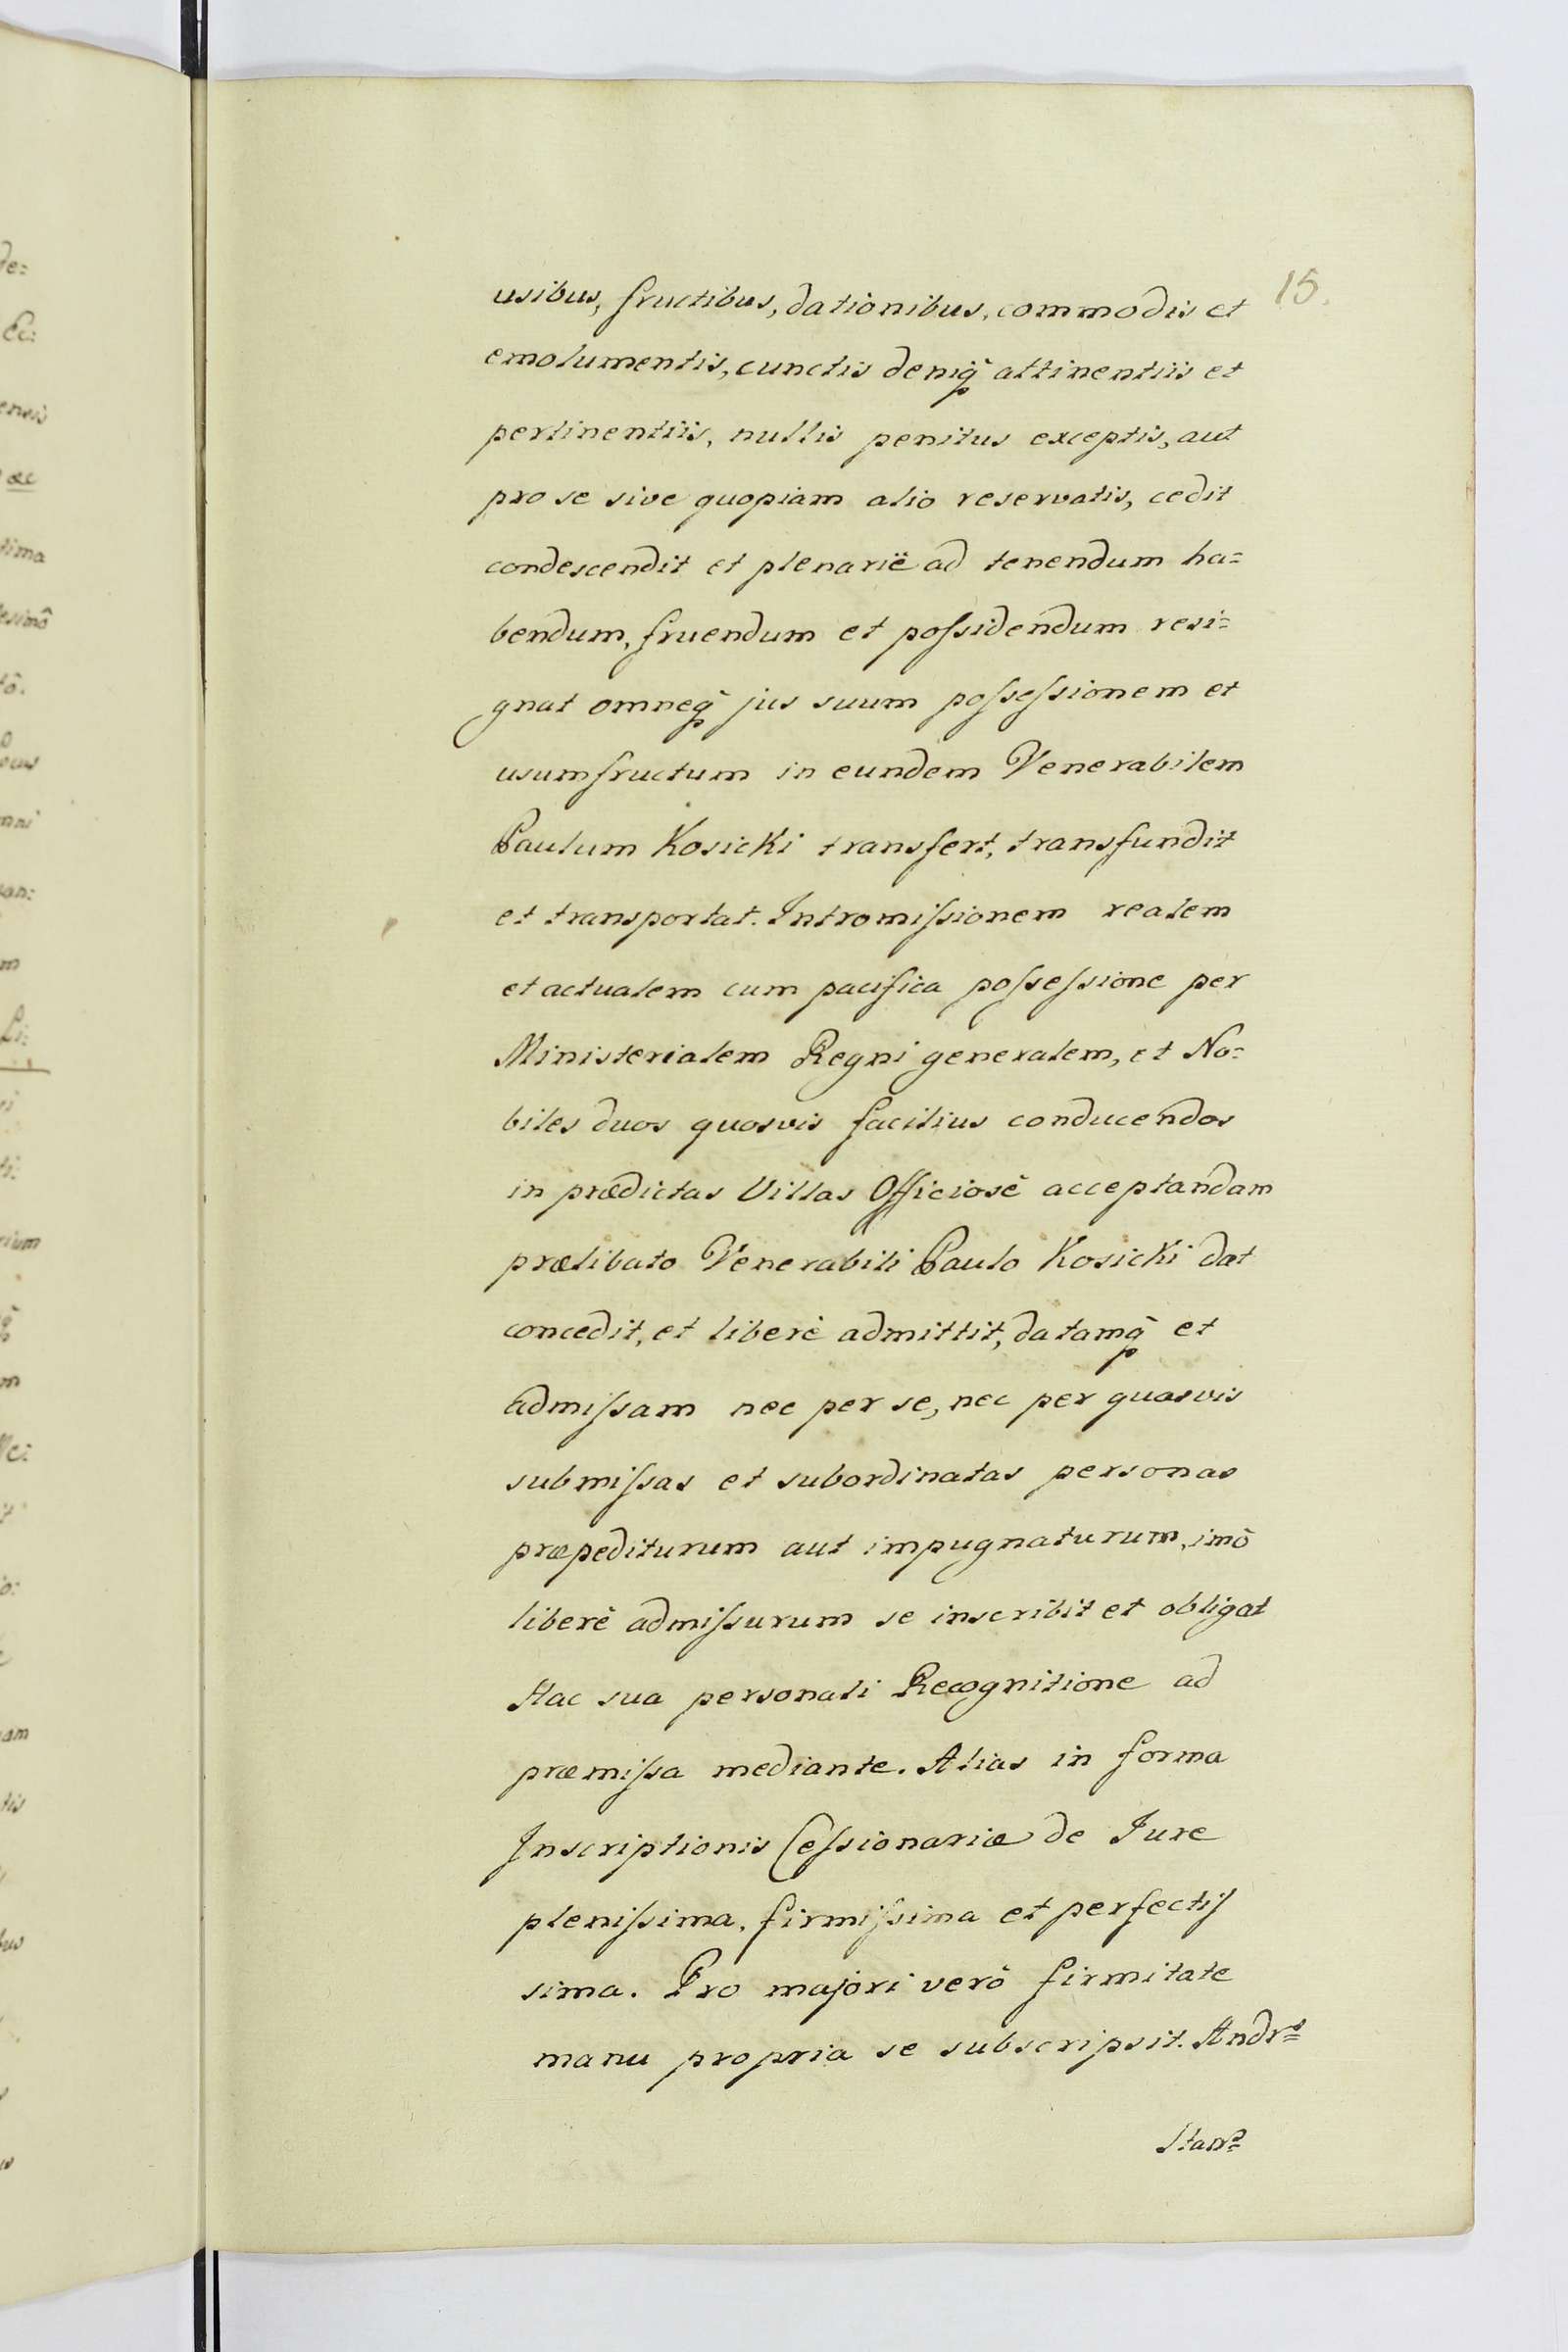 15.
usibus, fructibus, dationibus, commodis et
emolumentis, cunctis deniq̃ attinentiis et
pertinentiis, nullis penitus exceptis, aut
pro se sive quopiam alio reservatis, cedit
condescendit et plenariè ad tenendum ha=
bendum, fruendum et poſsidendum resi=
gnat omneq̃ jus suum poſseſsionem et
usumfructum in eundem Venerabilem
Paulum Kosicki transfert, transfundit
et transportat. Intromiſsionem realem
et actualem cum pacifica poſseſsione per
Ministerialem Regni generalem, et No=
biles duos quosvis facilius conducendos
in prædictas Villas Officiosè acceptandam
prælibato Venerabili Paulo Kosicki dat
concedit, et liberè admittit, datamq̃ et
admiſsam nec per se, nec per quasvis
submiſsas et subordinatas personas
præpediturum aut impugnaturum, imò
liberè admiſsurum se inscribit et obligat
Hac sua personali Recognitione ad
præmiſsa mediante. Alias in forma
Inscriptionis Ceſsionariæ de Jure
pleniſsima, firmiſsima et perfectiſ
sima. Pro majori verò firmitate
manu propria se subscripsit. Andrs